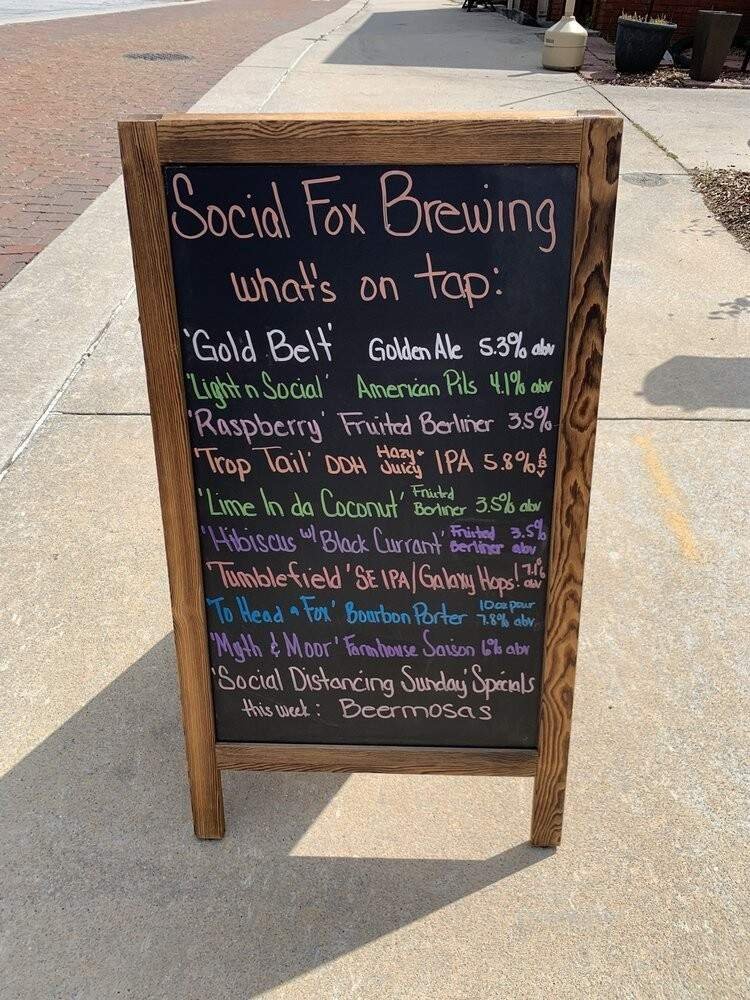 Social Fox Brewing
what's on tap:
'Gold Belt' Golden Ale 5.3% abv
'Light n Social' American Pils 4.1% abv
'Raspberry' Fruited Berliner 3.5%
'Trop Tail' DDH Hazy + Juicy IPA 5.8% ABV
'Lime In da Coconut' Fruited Berliner 3.5% abv
'Hibiscus w/ Black Currant' Fruited Berliner 3.5% abv
'Tumblefield' SE IPA/Galaxy Hops! 7.1% abv
'To Head a Fox' Bourbon Porter 10oz pour 7.8% abv
'Myth & Moor' Farmhouse Saison 6% abv
'Social Distancing Sunday' Specials
this week: Beermosas